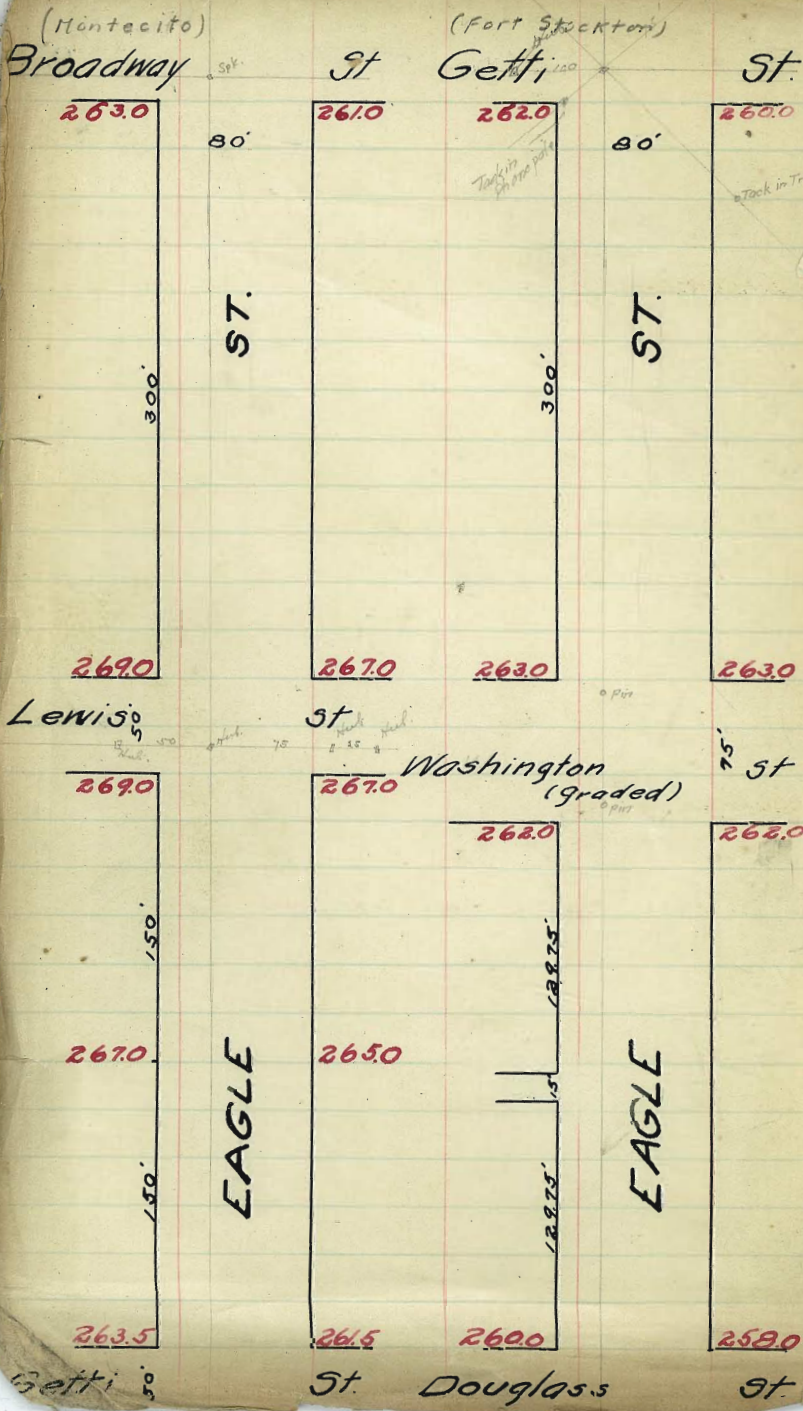 (Montecito) (Fort Stockton)
Broadway St Getti St.
Spk.
100
263.0 261.0 262.0 260.0
80' 80'
Tack in
phone pole
Tack in Tr
ST. ST.
300' 300'
269.0 267.0 263.0 263.0
Pin
Lewis 50' St
Hub. 50 Hub. 75 Hub 25 Hub.
Washington 75' St
(graded)
Pin
269.0 267.0
262.0 262.0
150' 129.75'
267.0 265.0
15'
EAGLE EAGLE
150' 129.75'
263.5 261.5 260.0 258.0
Getti 50' St. Douglass St.